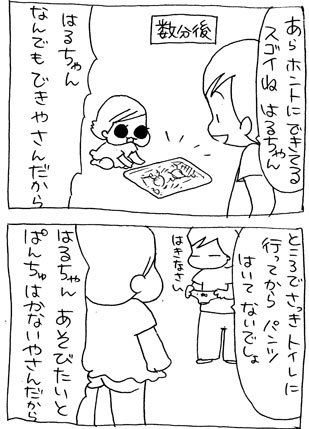 数分後
あらホントにできてる
スゴイね はるちゃん
はるちゃん
なんでもできやさんだから
ところでさっきトイレに
行ってから パンツ
はいてないでしょ
はきなさい
はるちゃん あそびたいと
ぱんちゅはかないやさんだから